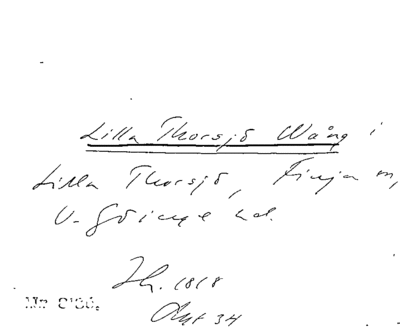 Lilla Thorsjö Wång i
Lilla Thorsjö, Finja sn,
V. Göinge hd.
Th. 1818
Akt 34